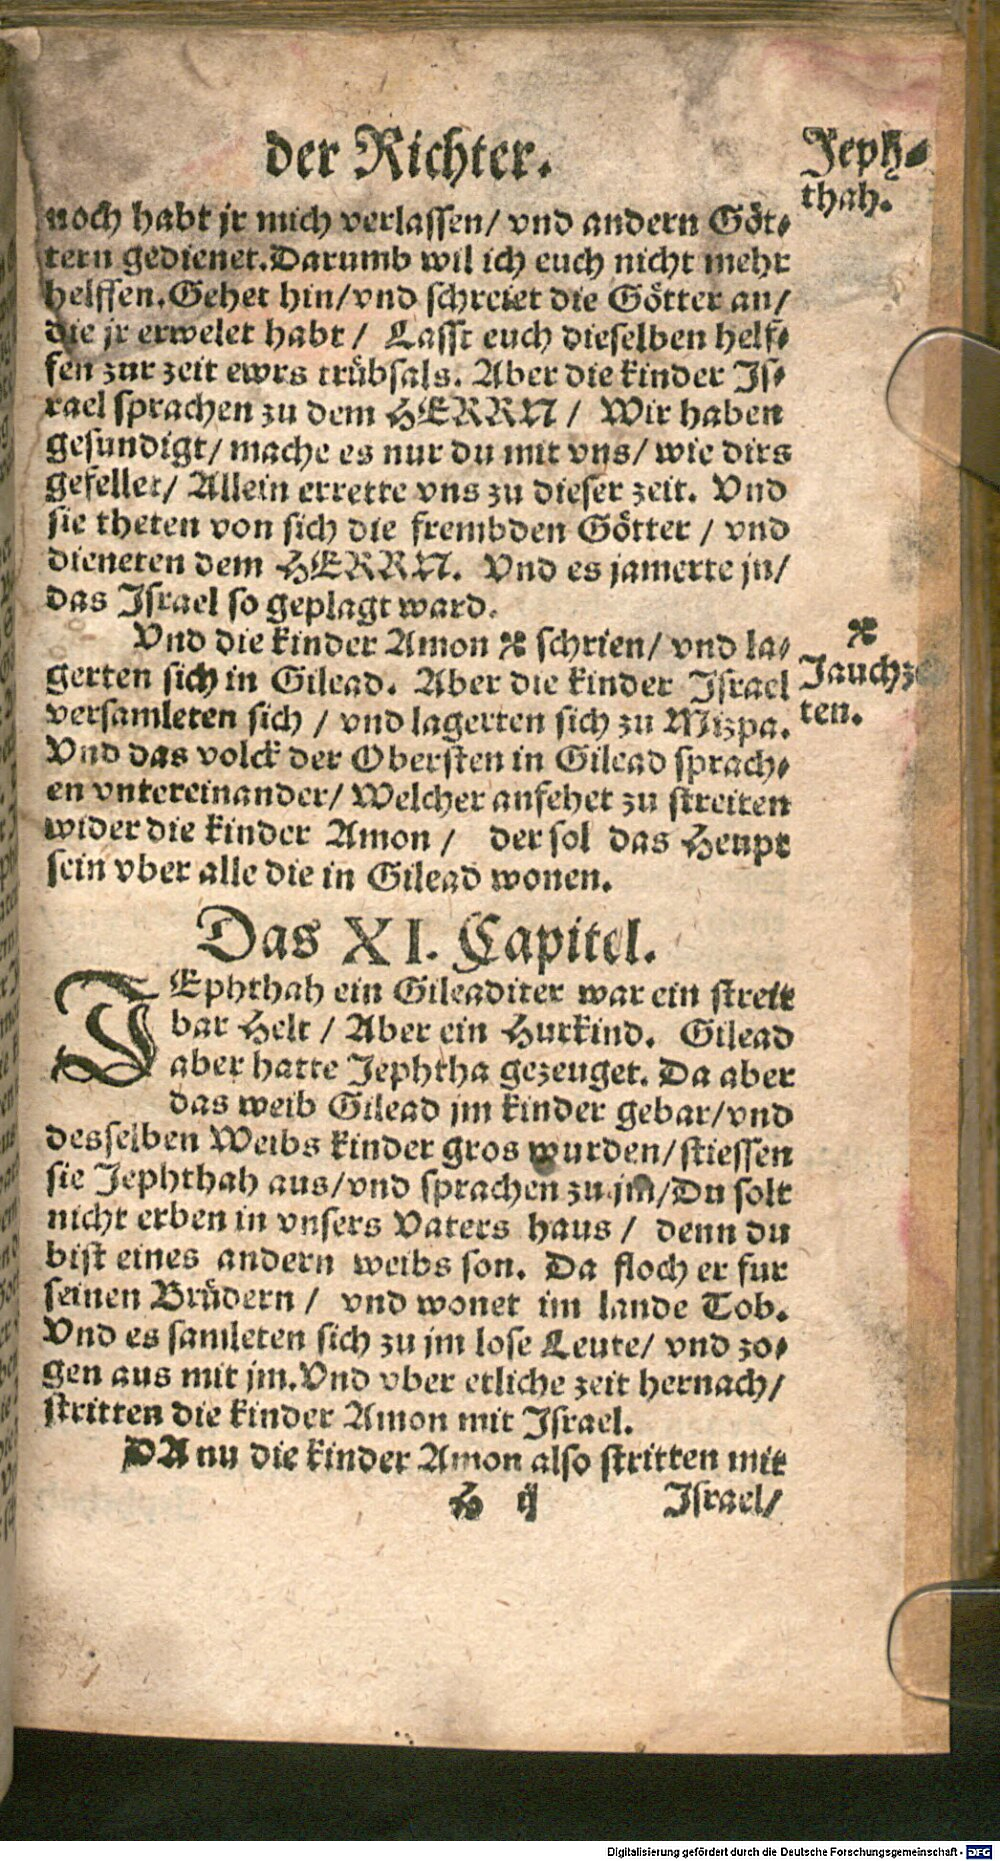 der Richter.
Jeph⸗
thah.
noch habt jr mich verlassen/ vnd andern Göt⸗
tern gedienet. Darumb wil ich euch nicht mehr
helffen. Gehet hin/ vnd schreiet die Götter an/
die jr erwelet habt/ Lasst euch dieselben helf⸗
fen zur zeit ewrs trübsals. Aber die kinder Js⸗
rael sprachen zu dem HERRN/ Wir haben
gesundigt/ mache es nur du mit vns/ wie dirs
gefellet/ Allein errette vns zu dieser zeit. Vnd
sie theten von sich die frembden Götter/ vnd
dieneten dem HERRN. Vnd es jamerte jn/
das Jsrael so geplagt ward.
Vnd die kinder Amon ※ schrien/ vnd la⸗
gerten sich in Gilead. Aber die kinder Jsrael
versamleten sich/ vnd lagerten sich zu Mizpa.
Vnd das volck der Obersten in Gilead sprach⸗
en vntereinander/ Welcher anfehet zu streiten
wider die kinder Amon/ der sol das Heupt
sein vber alle die in Gilead wonen.
※
Jauchze
ten.
Das XI. Capitel.
JEphthah ein Gileaditer war ein streit
bar Helt/ Aber ein Hurkind. Gilead
aber hatte Jephtha gezeuget. Da aber
das weib Gilead jm kinder gebar/ vnd
desselben Weibs kinder gros wurden/ stiessen
sie Jephthah aus/ vnd sprachen zu jm/ Du solt
nicht erben in vnsers Vaters haus/ denn du
bist eines andern weibs son. Da floch er fur
seinen Brüdern/ vnd wonet im lande Tob.
Vnd es samleten sich zu jm lose Leute/ vnd zo⸗
gen aus mit jm. Vnd vber etliche zeit hernach/
stritten die kinder Amon mit Jsrael.
DA nu die kinder Amon also stritten mit
H ij Jsrael/
Digitalisierung gefördert durch die Deutsche Forschungsgemeinschaft - DFG